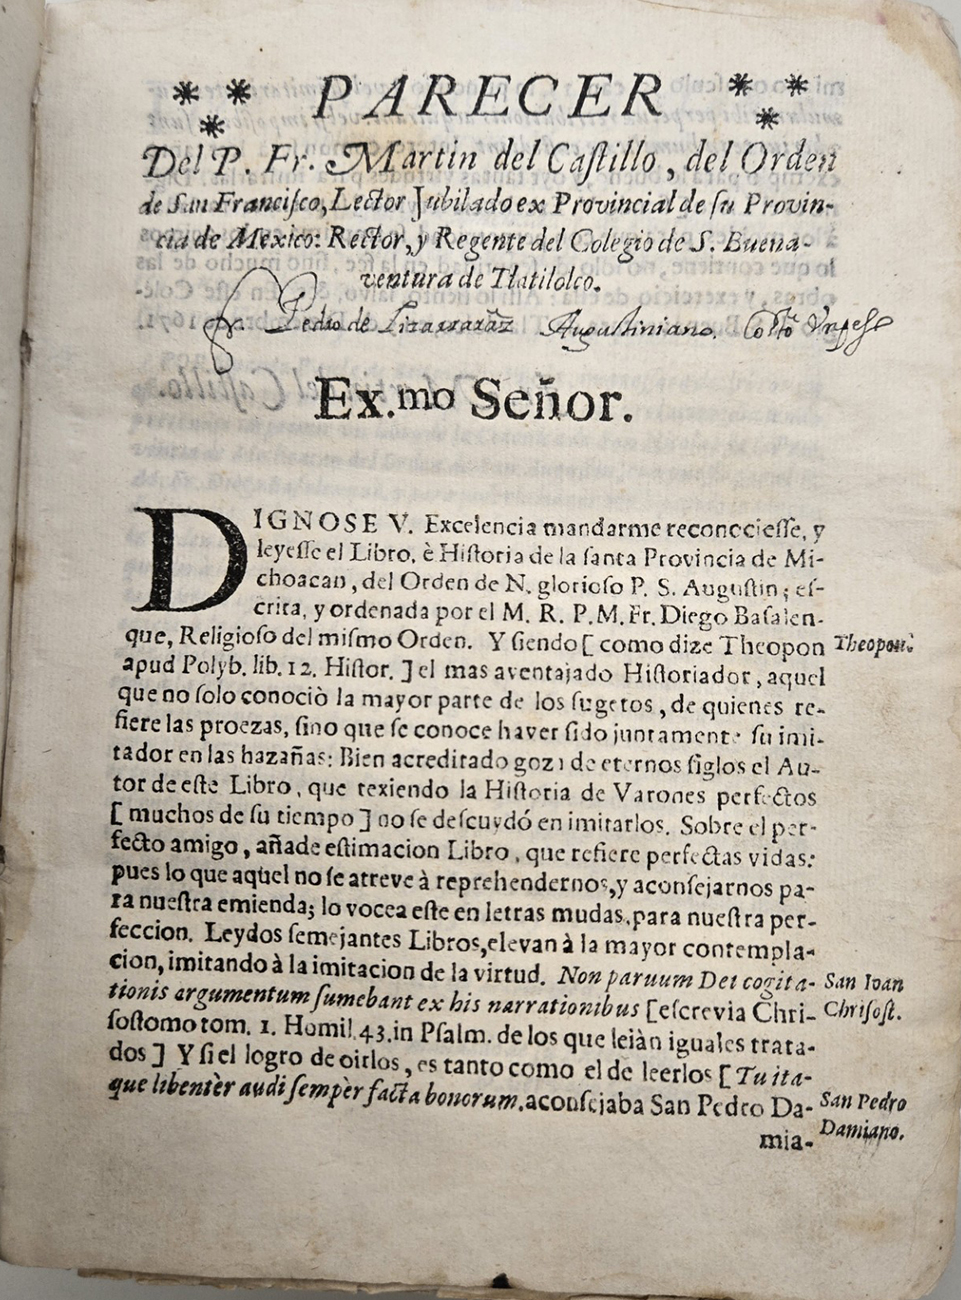 PARECER
Del P. Fr. Martin del Caſtillo, del Orden
de San Franciſco, Lector Jubilado ex Provincial de ſu Provin-
cia de Mexico: Rector, y Regente del Colegio de S. Buena-
ventura de Tlatilolco.
Fr. Pedro de Augustiniano.
Ex.mo Señor.
DIGNOSE V. Excelencia mandarme reconocieſſe, y
leyeſſe el Libro, è Hiſtoria de la ſanta Provincia de Mi-
choacan, del Orden de N. glorioſo P. S. Auguſtin; eſ-
crita, y ordenada por el M. R. P. M. Fr. Diego Baſalen-
que, Religioſo del miſmo Orden. Y ſiendo [ como dize Theopon
Theopon.
apud Polyb. lib. 12. Hiſtor. ] el mas aventajado Hiſtoriador, aquel
que no ſolo conociò la mayor parte de los ſugetos, de quienes re-
fiere las proezas, ſino que ſe conoce haver ſido juntamente ſu imi-
tador en las hazañas: Bien acreditado goza de eternos ſiglos el Au-
tor de eſte Libro, que texiendo la Hiſtoria de Varones perfectos
[ muchos de ſu tiempo ] no ſe deſcuydó en imitarlos. Sobre el per-
fecto amigo, añade eſtimacion Libro, que refiere perfectas vidas:
pues lo que aqüel no ſe atreve à reprehendernos, y aconſejarnos pa-
ra nueſtra emienda; lo vocea eſte en letras mudas, para nueſtra per-
feccion. Leydos ſemejantes Libros, elevan à la mayor contempla-
cion, imitando à la imitacion de la virtud. Non paruum Dei cogita-
San Ioan
tionis argumentum ſumebant ex his narrationibus [ eſcrevia Chri-
Chriſoſt.
ſoſtomo tom. 1. Homil. 43. in Pſalm. de los que leiàn iguales trata-
dos ] Y ſi el logro de oirlos, es tanto como el de leerlos [ Tu ita-
que libentèr audi ſempèr facta bonorum. aconſejaba San Pedro Da-
San Pedro
Damiano.
mia-